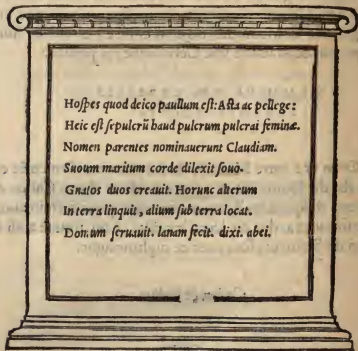 Hoſpes quod deico paullum eſt: Aſta ac pellege:
Heic eſt ſepulcrũ haud pulcrum pulcrai feminæ.
Nomen parentes nominauerunt Claudiam.
Suoum maritum corde dilexit ſouo.
Gnatos duos creauit. Horunc alterum
In terra linquit, alium ſub terra locat.
Domum ſeruauit. lanam fecit. dixi. abei.